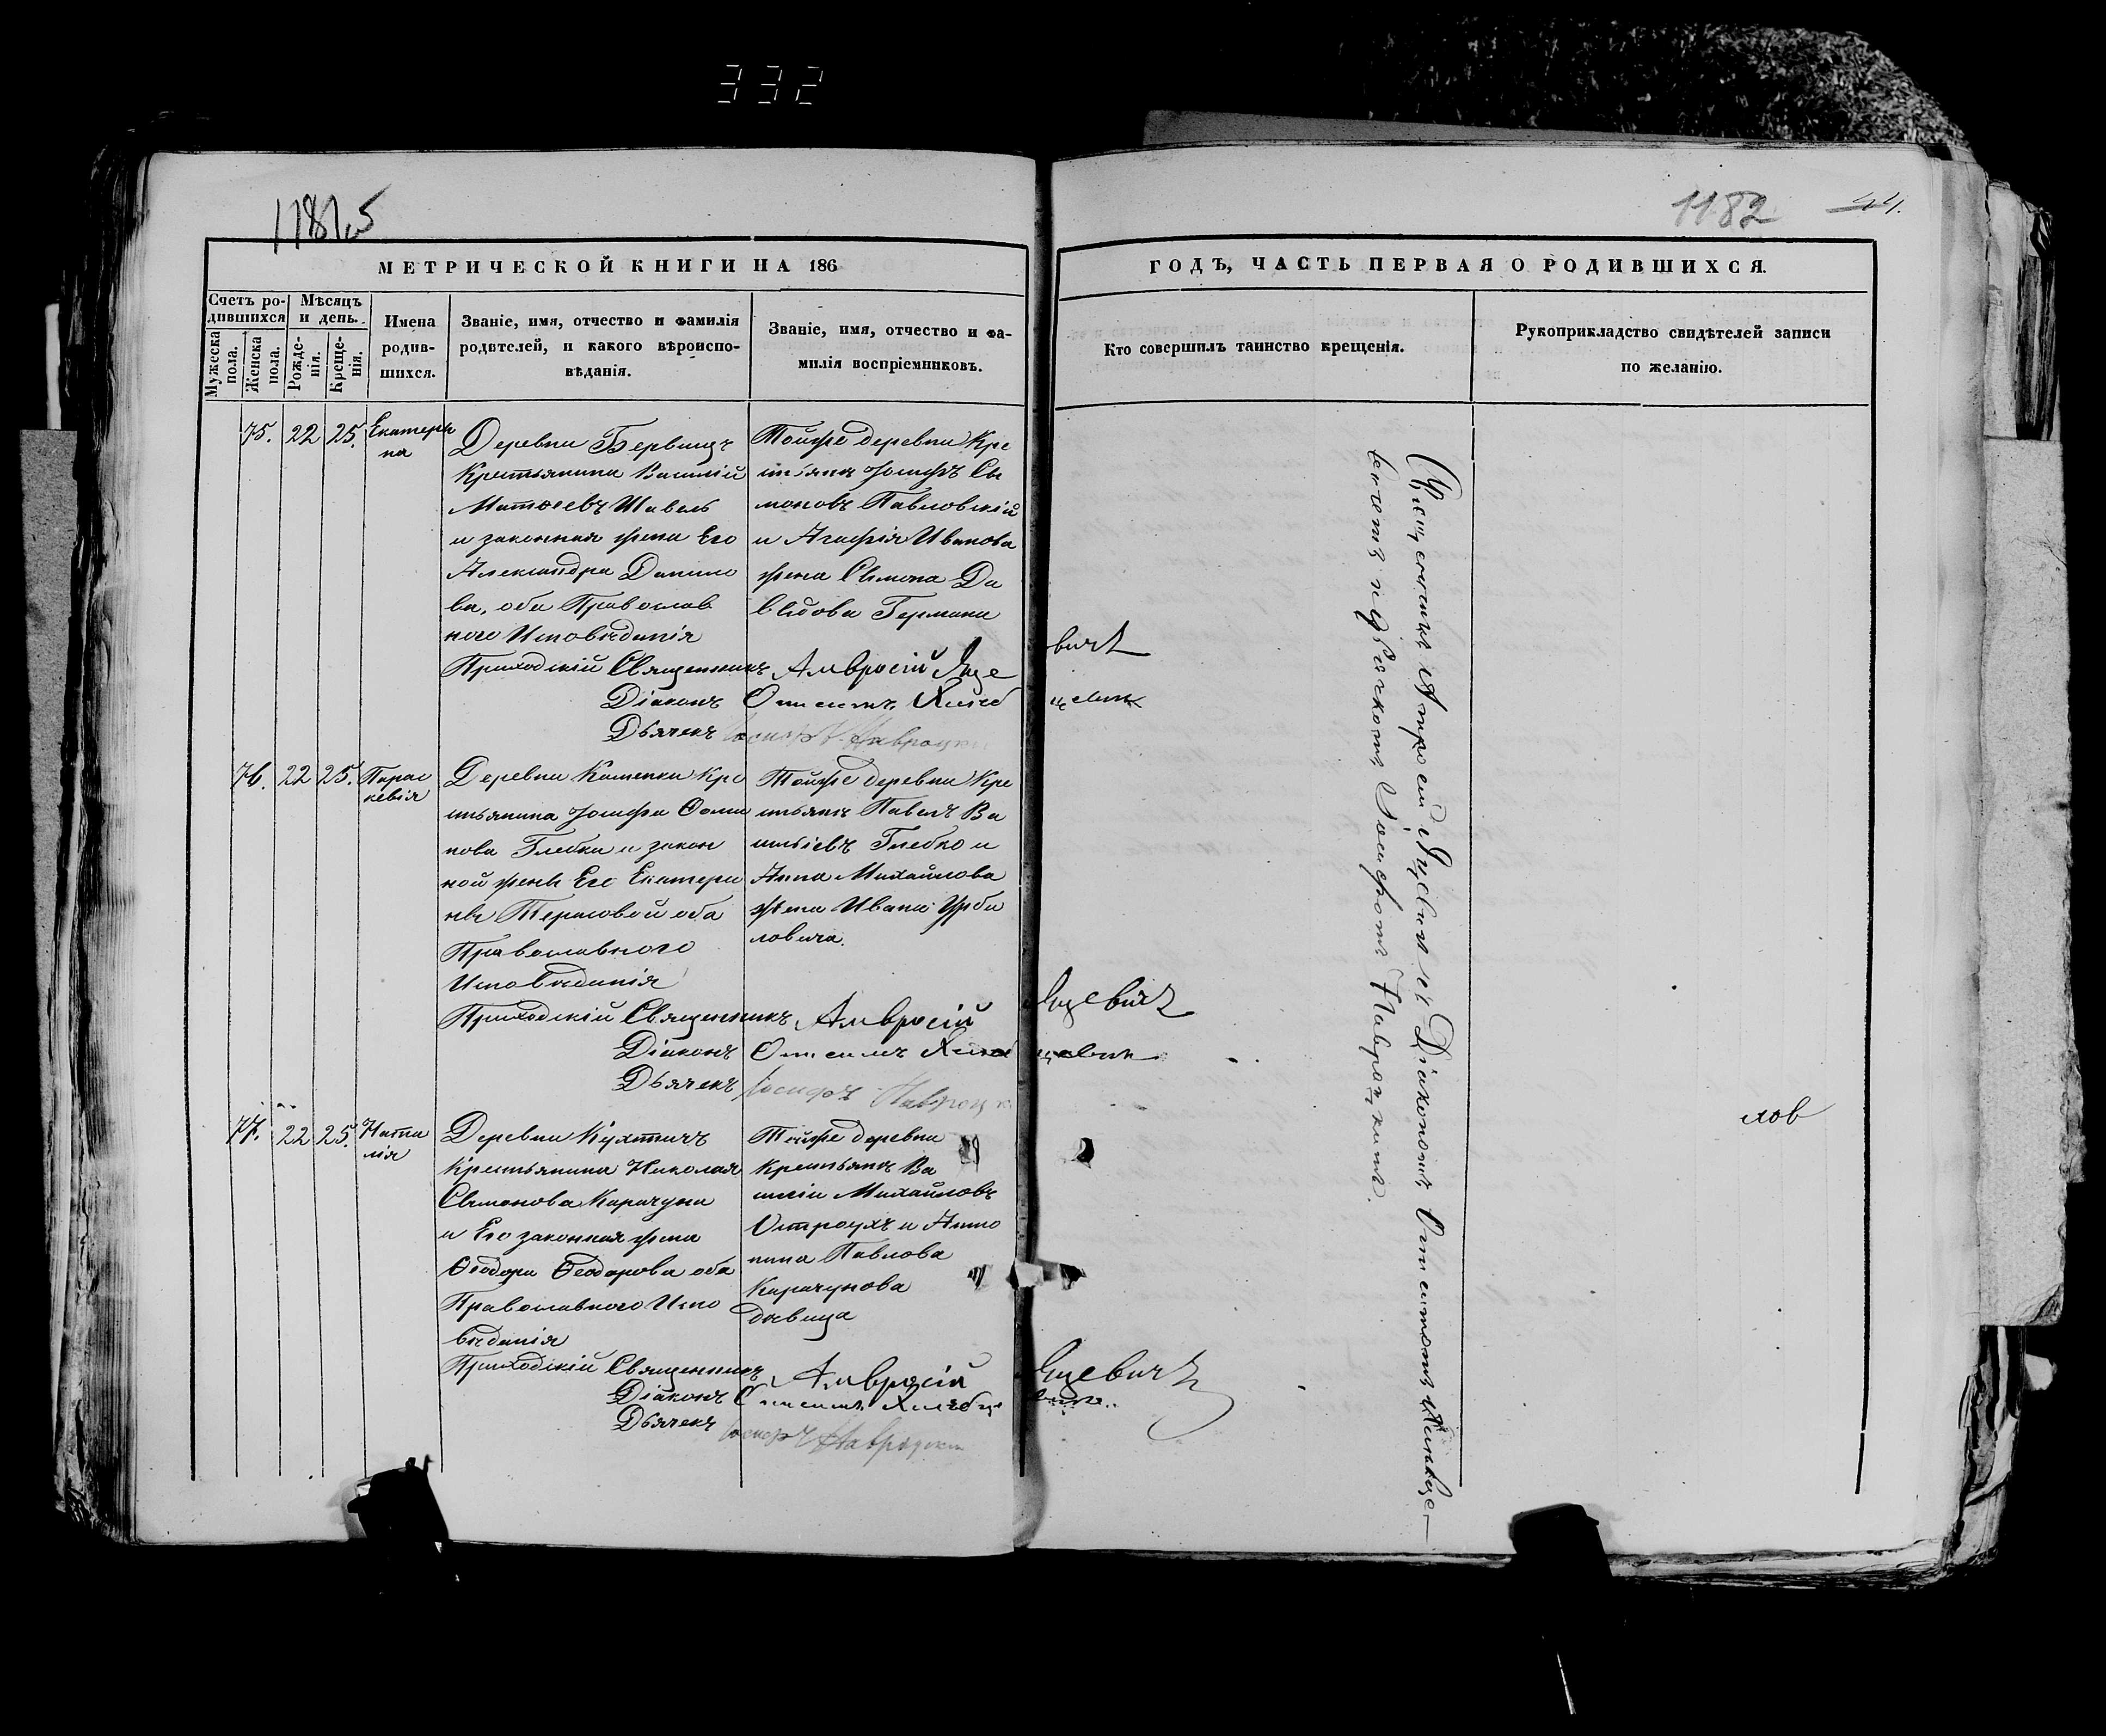 332
1181.5
1182 44.
МЕТРИЧЕСКОЙ КНИГИ НА 186
ГОДЪ, ЧАСТЬ ПЕРВАЯ О РОДИВШИХСЯ.
Счетъ ро-
дившихся
Мужеска
пола.
Женска
пола.
Мѣсяцъ
и день.
Рожде-
нія.
Креще-
нія.
Имена
родив-
шихся.
Званіе, имя, отчество и фамилія
родителей, и какого вѣроиспо-
вѣданія.
Званіе, имя, отчество и фа-
милія воспріемниковъ.
Кто совершилъ таинство крещенія.
Рукоприкладство свидѣтелей записи
по желанію.
75. 22 25. Екатери
на
Деревни Бервищъ
Крестьянина Василій
Матѳеевъ Шавель
и законная жена Его
Александра Данило
ва, оба Православ
наго Исповѣданія
Тойже деревни Кре
стьянъ Іосифъ Сы
моновъ Павловскій
и Агафія Иванова
жена Сымона Да
выдова Германа
Приходскій Священникъ Амвросій Яцевичъ
Діаконъ Онисимъ Хлебцевичъ
Дьячекъ Іосифъ Навроцкій
76. 22 25. Парас
кевія
Деревни Каменки Кре
стьянина Іосифа Ѳоми
нова Глебка и закон
ной жены Его Екатери
ны Тарасовой оба
Православнаго
Исповѣданія
Тойже деревни Кре
стьянъ Павелъ Ва
сильевъ Глебко и
Анна Михайлова
жена Ивана
ловича.
Приходскій Священникъ Амвросій Яцевичъ
Діаконъ Онисимъ Хлебцевичъ
Дьячекъ Іосифъ Навроцкій
77. 22 25. Ната
лія
Деревни Кухтичъ
Крестьянина Николая
Сымонова Карачуна
и Его законная жена
Ѳеодора Ѳеодорова оба
Православнаго Испо
вѣданія
Тойже деревни
Крестьянъ Ва
силій Михайловъ
Остроухъ и Анто
нина Павлова
Карачунова
дѣвица
Приходскій Священникъ Амвросій Яцевичъ
Діаконъ Онисимъ Хлебцевичъ
Дьячекъ Іосифъ Навроцкій
Священникъ Амвросій Яцевичъ съ Діакономъ Онисимомъ Хлебце-
вичемъ и Дьячкомъ Іосифомъ Навроцкимъ.
лов